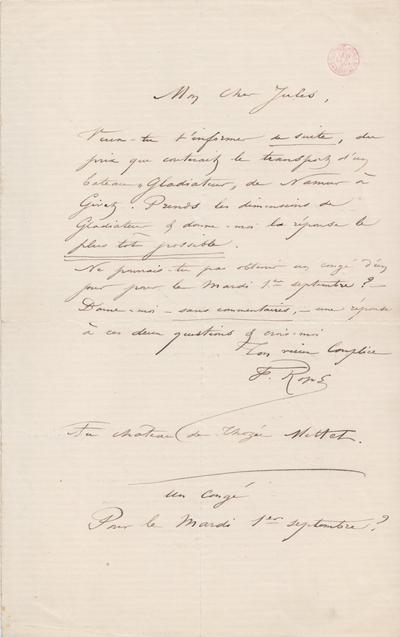 Mon Cher Jules,
Veux-tu t'informer de suite, du
prix que couterait le transport d'un
bateau, Gladiateur, de Namur à
Givet. Prends les dimensions de
Gladiateur & donne-moi la réponse le
plus tôt possible.
Ne pourrais-tu pas obtenir un congé d'un
jour pour le Mardi 1er septembre? -
Donne-moi - sans commentaires, - une réponse
à ces deux questions & crois-moi
Ton vieux Complice
F. Rops
Au château de Thozée Mettet.
Un congé
Pour le Mardi 1er septembre?